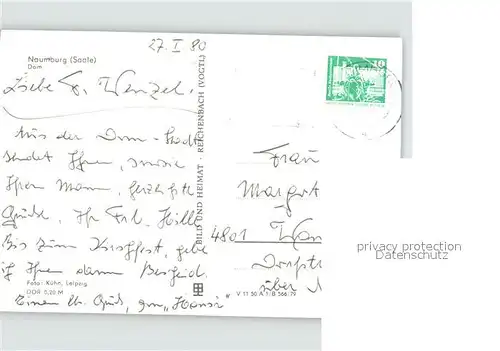 27. I 80
Naumburg (Saale)
Dom
Liebe Fr. Wenzel.
Aus der Dom-Stadt
sendet Ihnen, sowie
Ihrem Mann, herzlichste
Grüße, Ihr Frl. Hölle
Bis zum Kirchfest, gebe
ich Ihnen dann Bescheid.
Foto: Kühn, Leipzig
DDR 0,20 M
Einen lb. Gruß, von "Hansi"
BILD UND HEIMAT · REICHENBACH (VOGTL)
V 11 50 A 1/B 566/79
10
Frau
Margot
4801
Dorfstr
über
privacy protection
Datenschutz